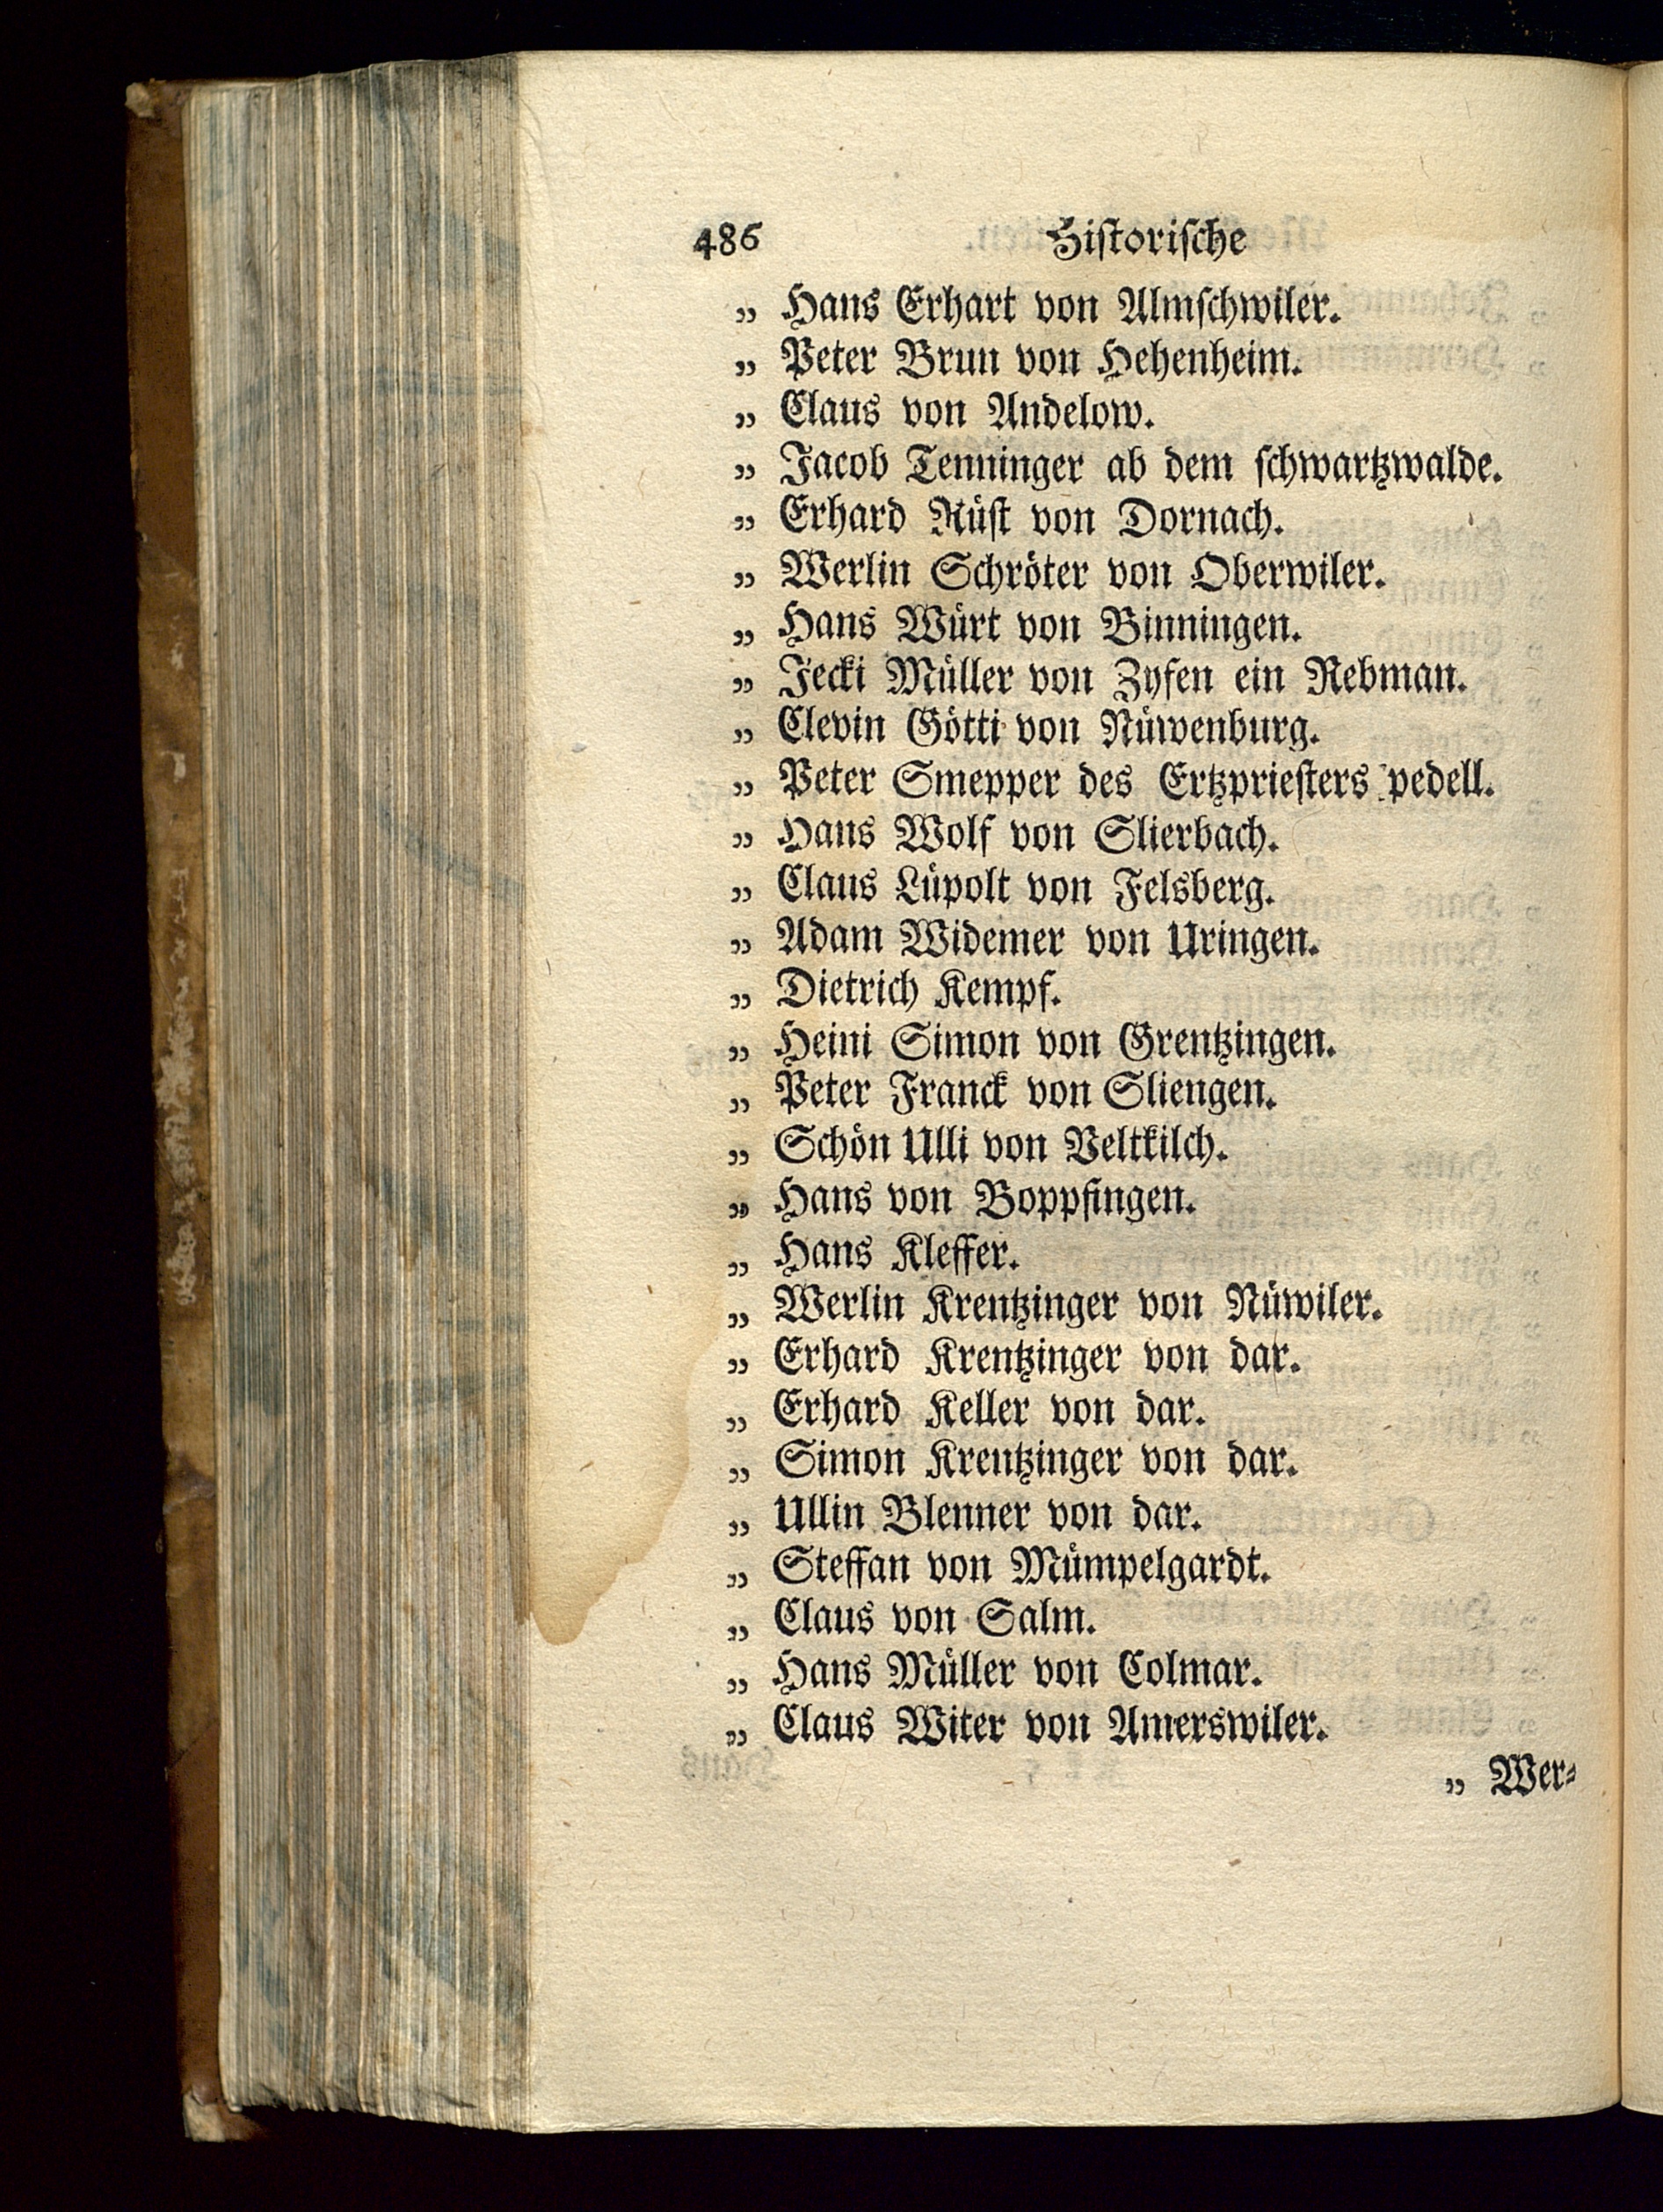 486 Hiſtoriſche
„ Hans Erhart von Almſchwiler.
„ Peter Brun von Hehenheim.
„ Claus von Andelow.
„ Jacob Tenninger ab dem ſchwartzwalde.
„ Erhard Rüſt von Dornach.
„ Werlin Schröter von Oberwiler.
„ Hans Würt von Binningen.
„ Jecki Müller von Zyfen ein Rebman.
„ Clevin Götti von Nüwenburg.
„ Peter Smepper des Ertzprieſters pedell.
„ Hans Wolf von Slierbach.
„ Claus Lüpolt von Felsberg.
„ Adam Widemer von Uringen.
„ Dietrich Kempf.
„ Heini Simon von Grentzingen.
„ Peter Franck von Sliengen.
„ Schön Ulli von Veltkilch.
„ Hans von Boppfingen.
„ Hans Kleffer.
„ Werlin Krentzinger von Nüwiler.
„ Erhard Krentzinger von dar.
„ Erhard Keller von dar.
„ Simon Krentzinger von dar.
„ Ullin Blenner von dar.
„ Steffan von Mümpelgardt.
„ Claus von Salm.
„ Hans Müller von Colmar.
„ Claus Witer von Amerswiler.
„ Wer⸗